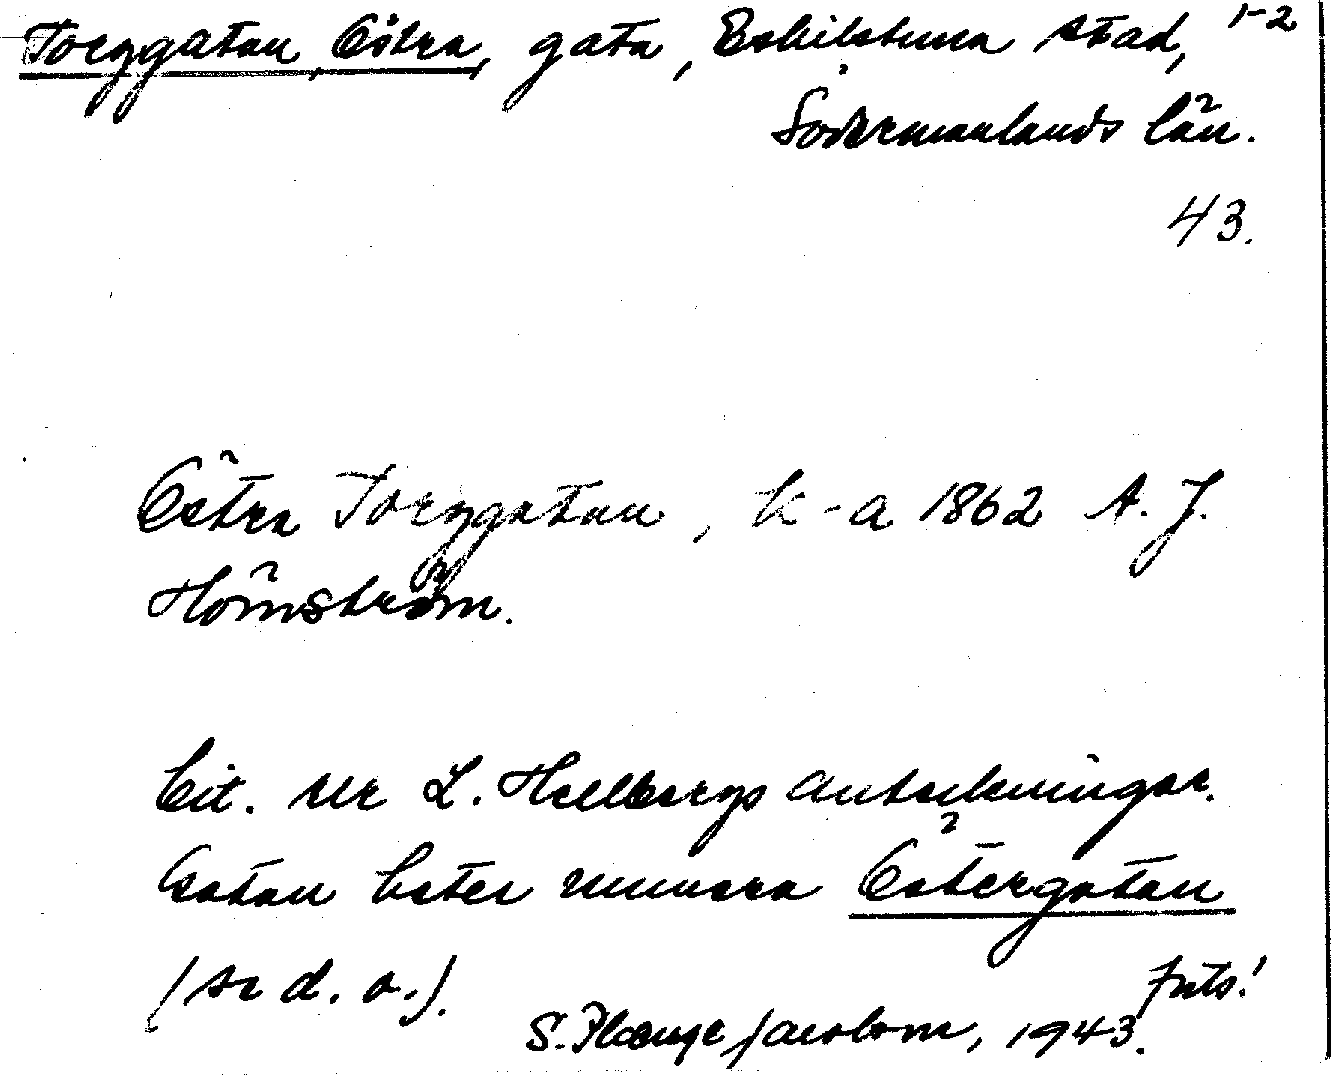 Torggatan, Östra, gata, Eskilstuna stad, 1-2
Södermanlands län.
43.
Östra Torggatan, k-a 1862 A. J.
Hörnström.
Cit. ur L. Hellbergs anteckningar.
Gatan heter numera Östergatan
(se d. o.).
forts!
S. Plænge Jacobson, 1943.